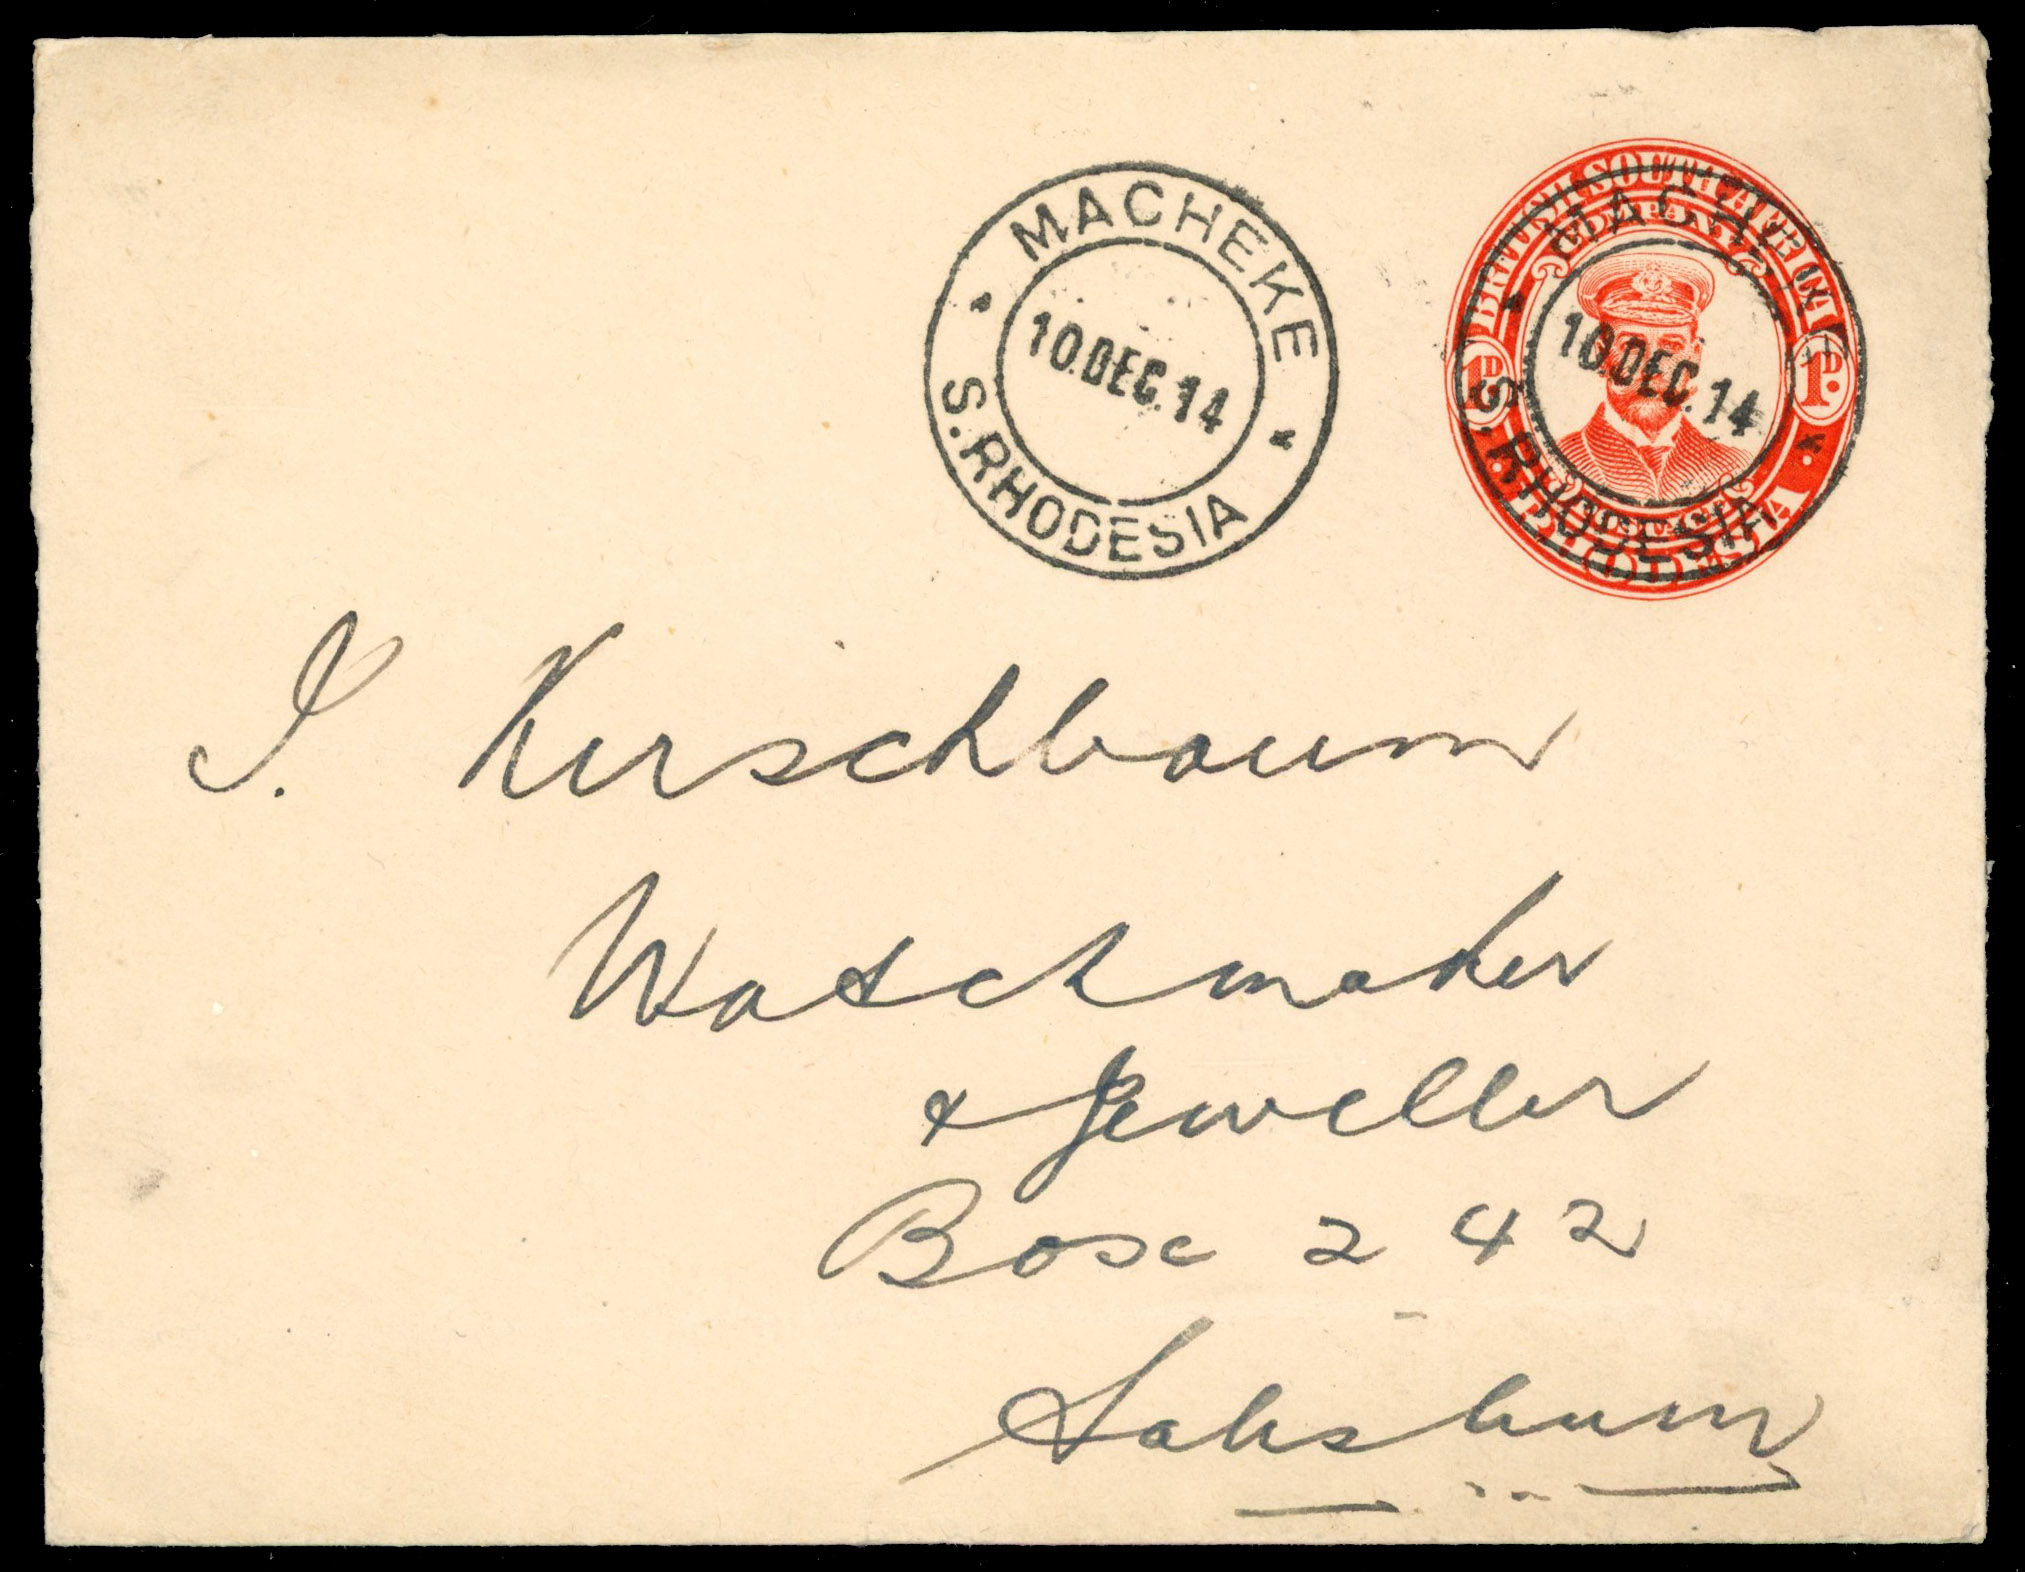 MACHEKE
10.DEC.14
S.RHODESIA
BRITISH SOUTH AFRICA
COMPANY
1D. 1D.
RHODESIA
MACHEKE
10.DEC.14
S.RHODESIA
I. Kirschbaum
Watchmaker
& Jeweller
Box 242
Salisbury